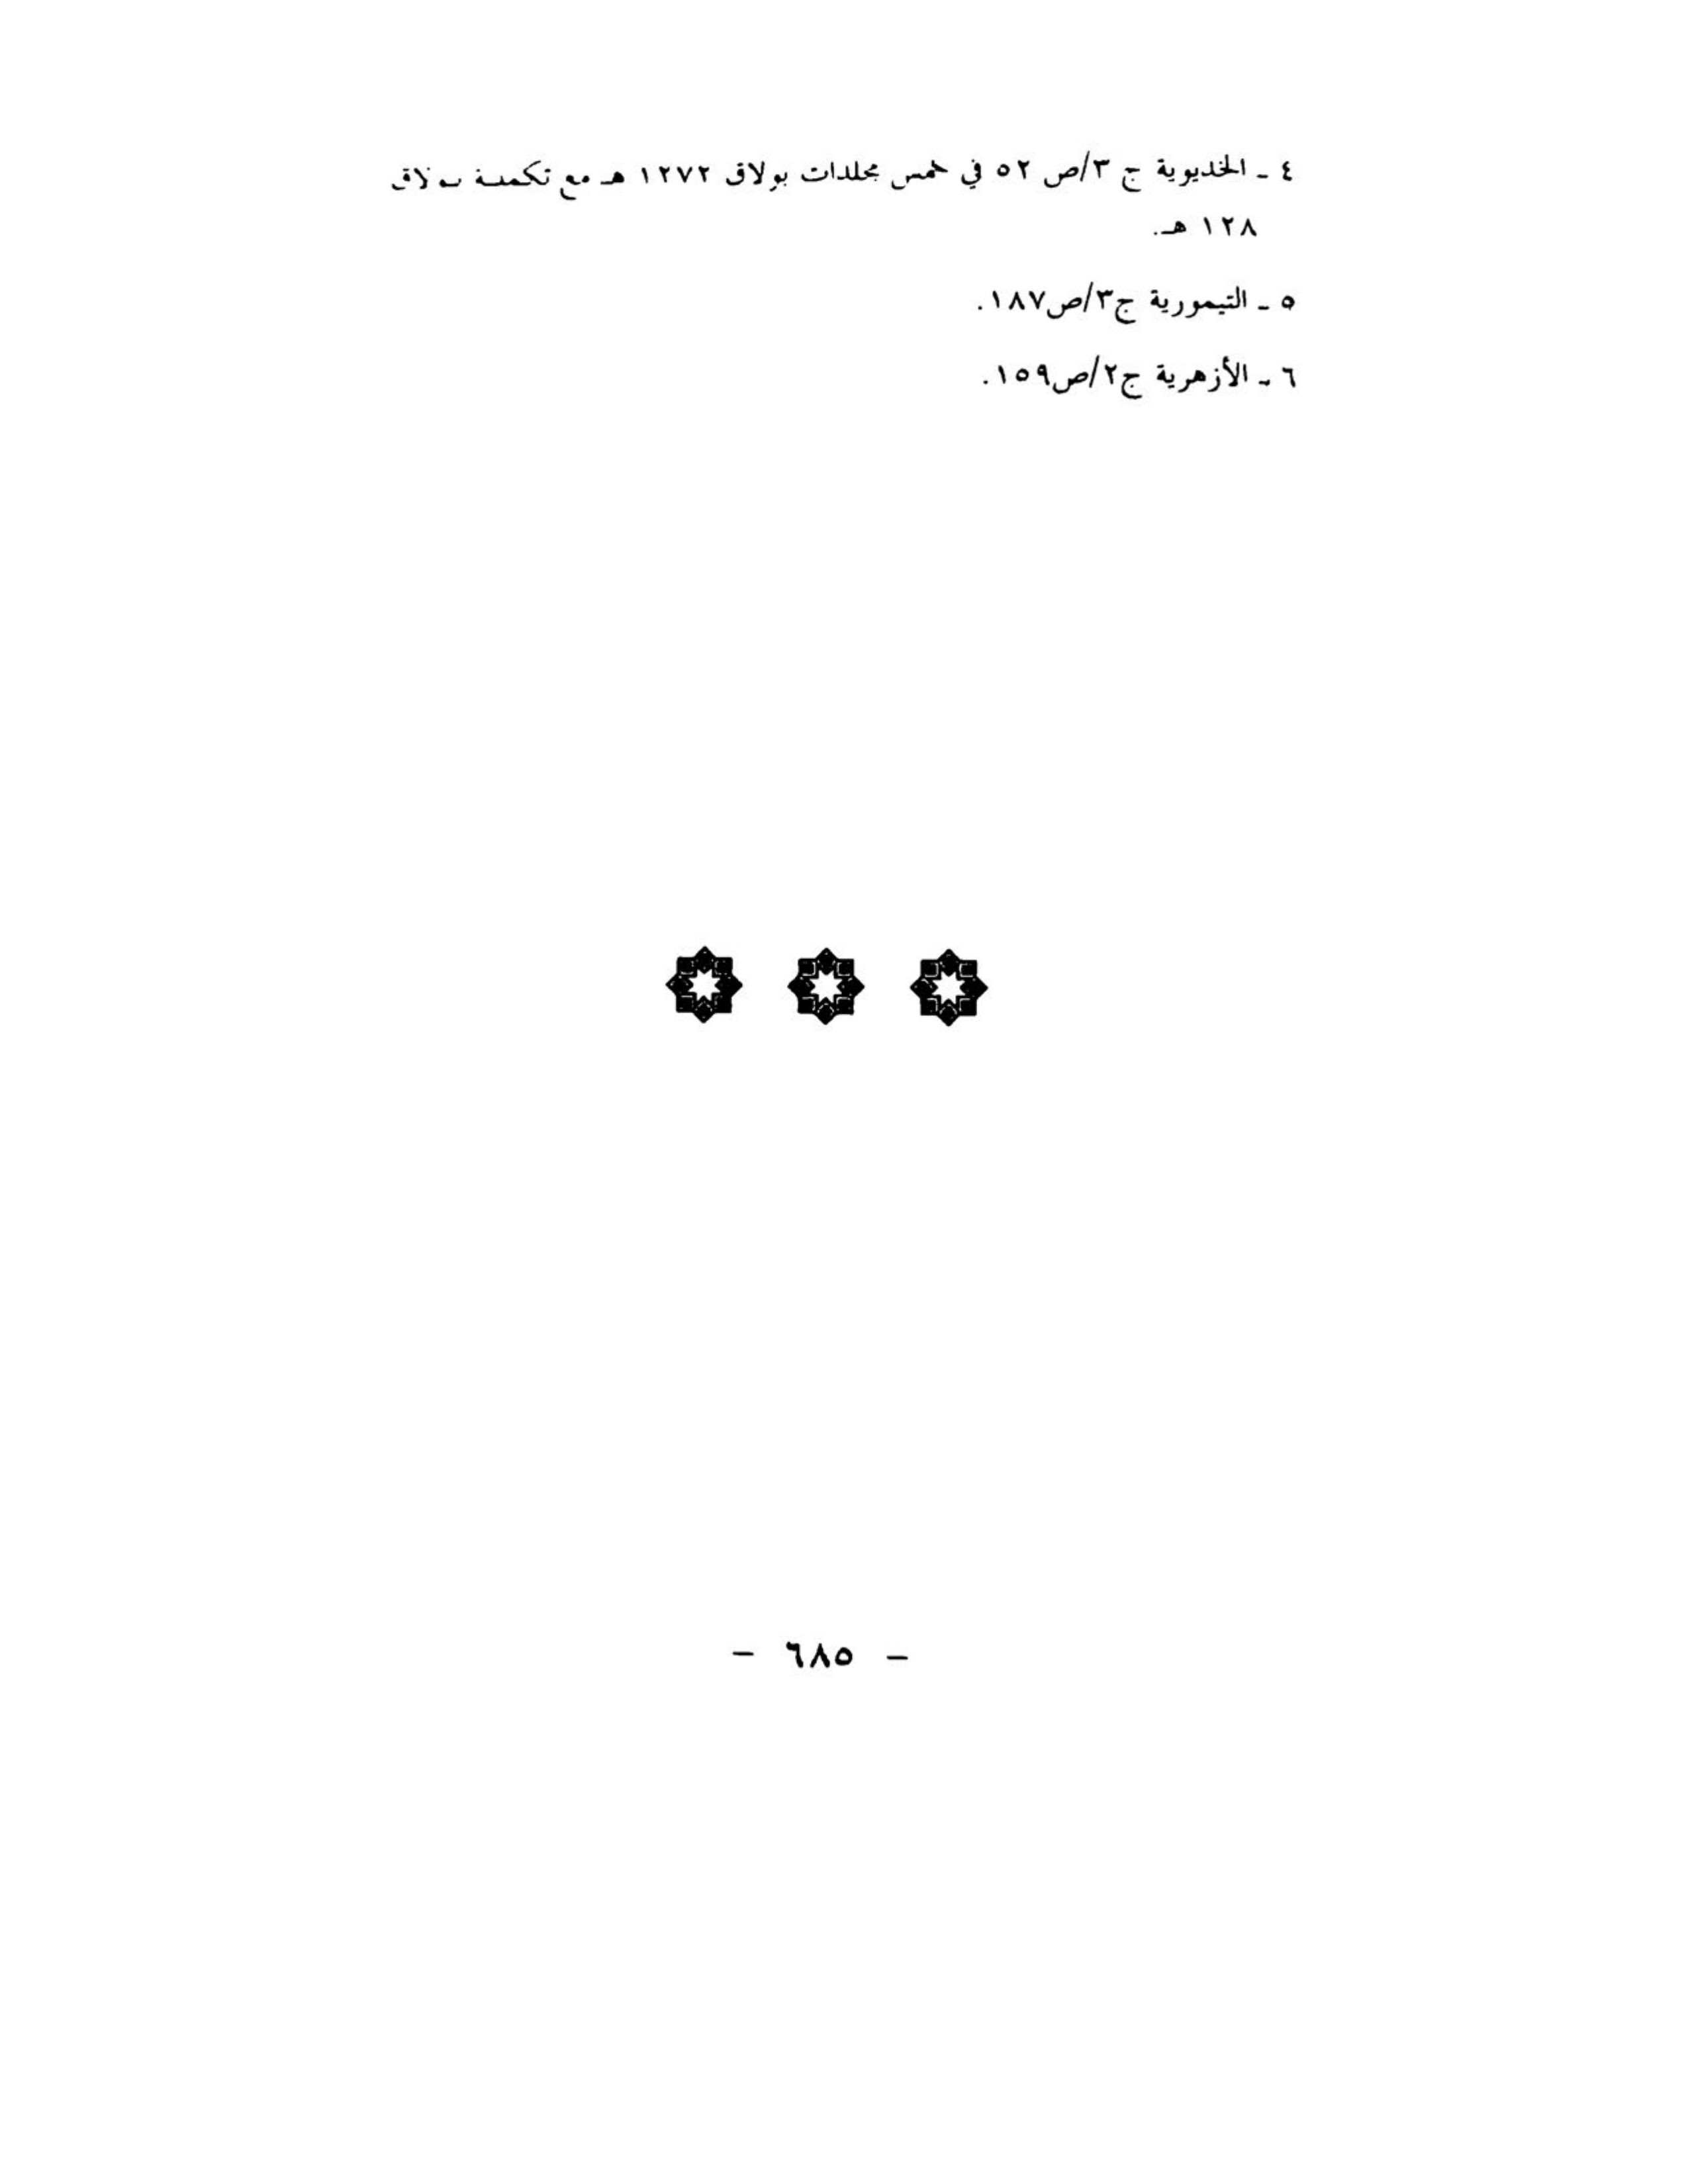 ٤ ـ الخديوية ج ٣/ص ٥٢ في خمس مجلدات بولاق ١٢٧٢ هـ مع تكملة بولاق
١٢٨ هـ.
٥ ـ التيمورية ج٣/ص١٨٧.
٦ ـ الأزهرية ج٢/ص١٥٩.
– ٦٨٥ –